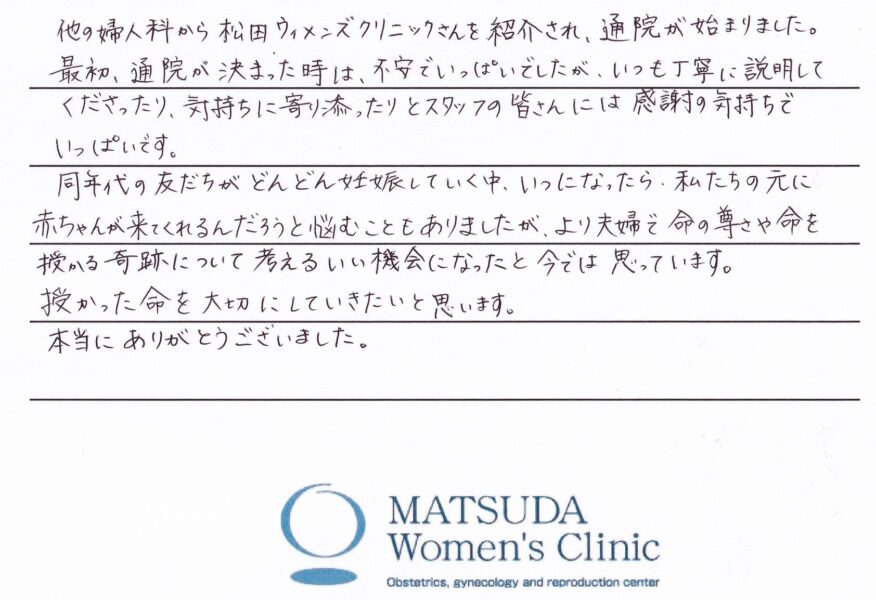 他の婦人科から松田ウィメンズクリニックさんを紹介され、通院が始まりました。
最初、通院が決まった時は、不安でいっぱいでしたが、いつも丁寧に説明して
くださったり、気持ちに寄り添ったりとスタッフの皆さんには感謝の気持ちで
いっぱいです。
同年代の友だちがどんどん妊娠していく中、いつになったら、私たちの元に
赤ちゃんが来てくれるんだろうと悩むこともありましたが、より夫婦で命の尊さや命を
授かる奇跡について考えるいい機会になったと今では思っています。
授かった命を大切にしていきたいと思います。
本当にありがとうございました。
MATSUDA
Women's Clinic
Obstetrics, gynecology and reproduction center